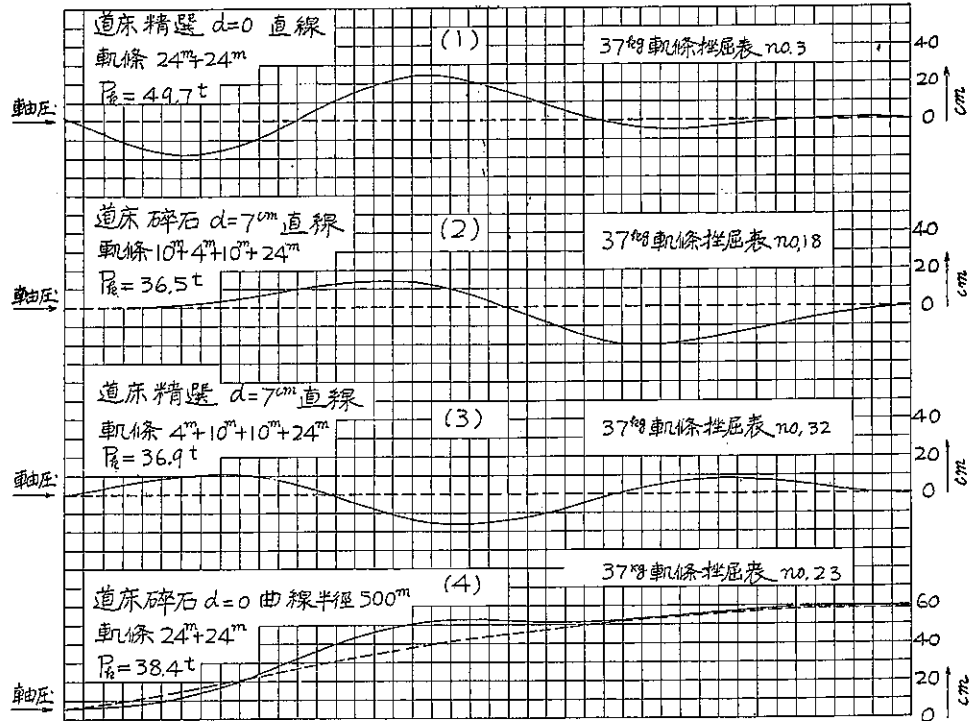 道床精選 d=0 直線
軌條 24m+24m
Pk=49.7t
(1)
37kg軌條挫屈表 no.3
軸圧
40
20
0
cm
道床碎石 d=7cm 直線
軌條 10m+4m+10m+24m
Pk=36.5t
(2)
37kg軌條挫屈表 no.18
軸圧
40
20
0
cm
道床精選 d=7cm 直線
軌條 4m+10m+10m+24m
Pk=36.9t
(3)
37kg軌條挫屈表 no.32
軸圧
40
20
0
cm
道床碎石 d=0 曲線半徑 500m
軌條 24m+24m
Pk=38.4t
(4)
37kg軌條挫屈表 no.23
軸圧
60
40
20
0
cm